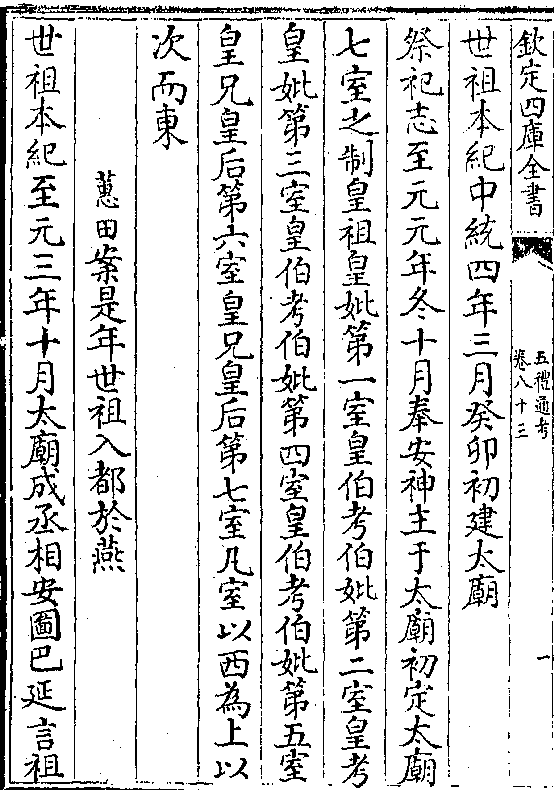 欽定四庫全書
五禮通考
卷八十三
一
世祖本紀中統四年三月癸卯初建太廟
祭祀志至元元年冬十月奉安神主于太廟初定太廟
七室之制皇祖皇妣第一室皇伯考伯妣第二室皇考
皇妣第三室皇伯考伯妣第四室皇伯考伯妣第五室
皇兄皇后第六室皇兄皇后第七室凡室以西為上以
次而東
蕙田案是年世祖入都於燕
世祖本紀至元三年十月太廟成丞相安圖巴延言祖